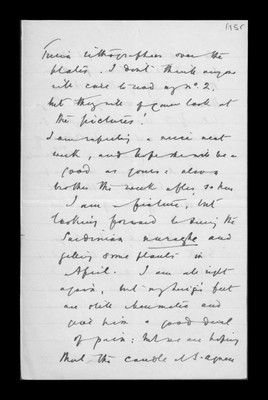 Turin lithographers over the
plates. I don't think anyone
will care to read my no. 2,
but they will of course look at
the pictures!
I am expecting a niece next
week, and hope she will be as
good as yours: also a
brother the week after, so here
I am a fixture, but
looking forward to seeing the
Sardinian nuraghe and
getting some plants in
April. I am all right
again, but my feet
are still rheumatic and
give him a good deal
of pain: but we are hoping
that the